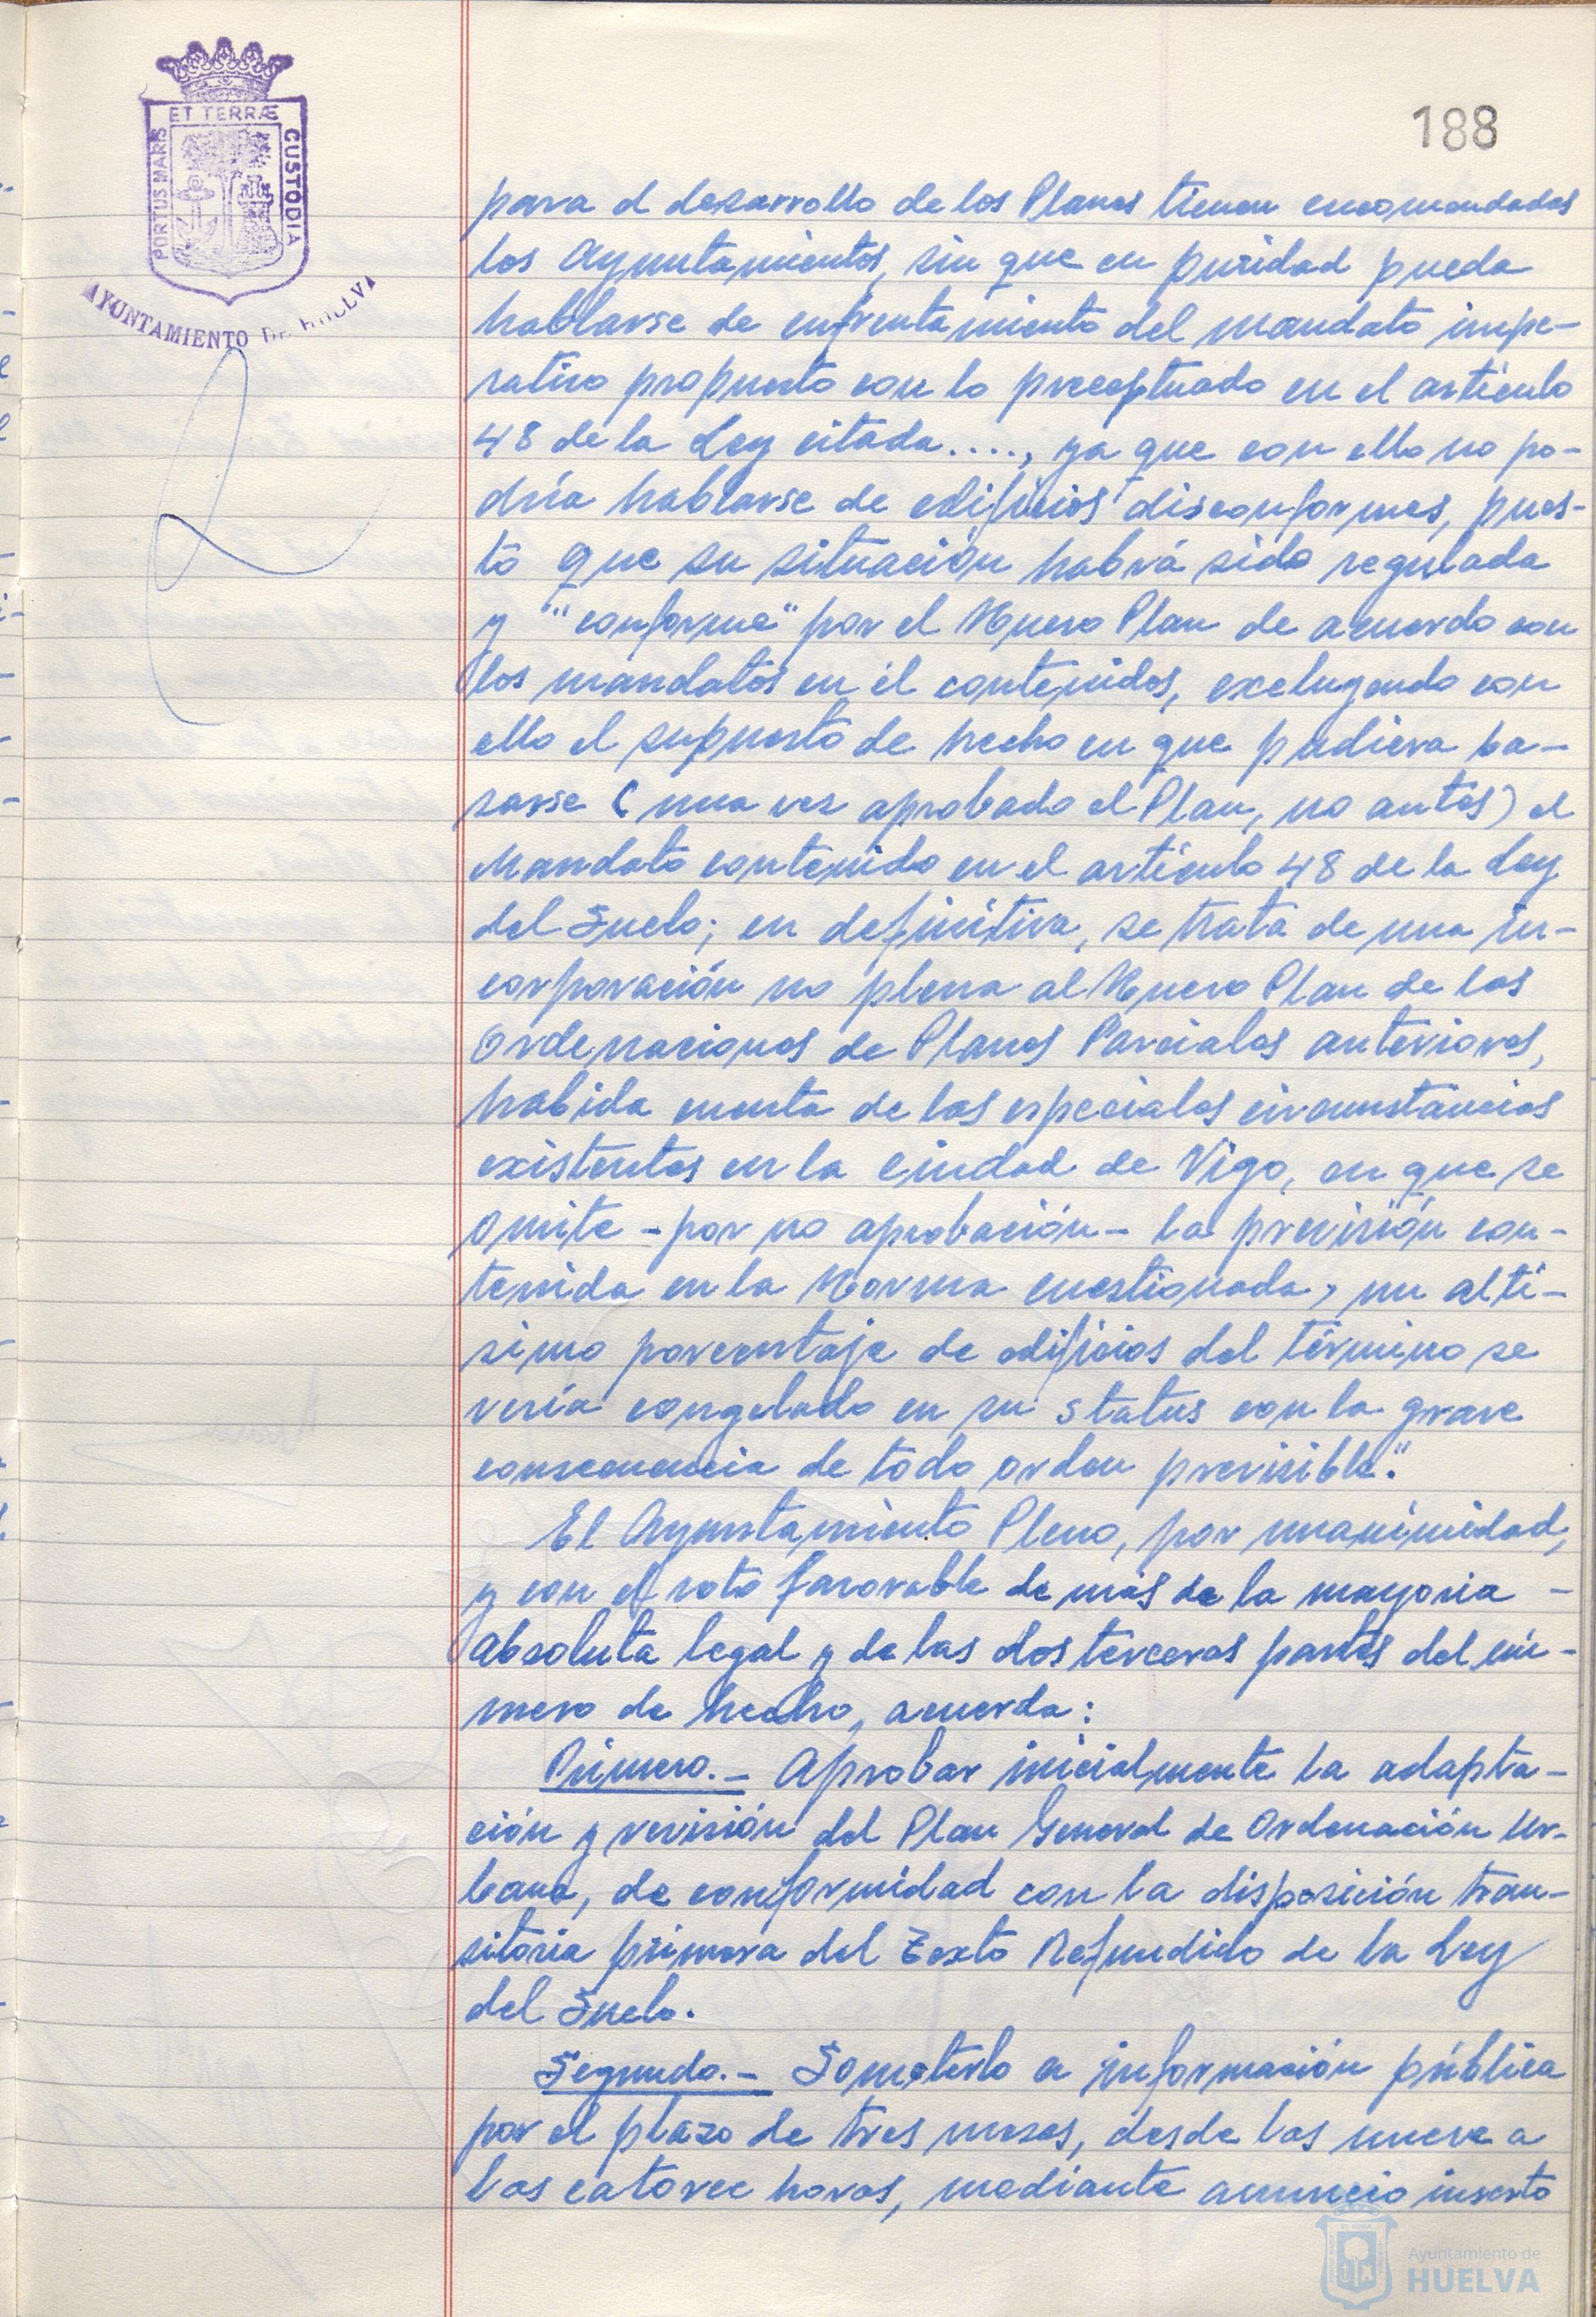 ET TERRÆ
PORTUS MARIS
CUSTODIA
AYUNTAMIENTO DE HUELVA
188
para el desarrollo de los Planes tienen encomendadas
los Ayuntamientos, sin que en puridad pueda
hablarse de enfrentamiento del mandato impe-
rativo propuesto con lo preceptuado en el artículo
48 de la Ley citada...., ya que con ello no po-
dría hablarse de edificios disconformes, pues-
to que su situación habrá sido regulada
y "conforme" por el Nuevo Plan de acuerdo con
los mandatos en él contenidos, excluyendo con
ello el supuesto de hecho en que pudiera ba-
sarse (una vez aprobado el Plan, no antes) el
Mandato contenido en el artículo 48 de la Ley
del Suelo; en definitiva, se trata de una in-
corporación no plena al Nuevo Plan de las
Ordenaciones de Planes Parciales anteriores,
habida cuenta de las especiales circunstancias
existentes en la Ciudad de Vigo, en que se
omite -por no aprobación- la previsión con-
tenida en la Norma cuestionada, un altí-
simo porcentaje de edificios del término se
vería congelado en su status con la grave
consecuencia de todo orden previsible."
El Ayuntamiento Pleno, por unanimidad,
y con el voto favorable de más de la mayoria -
absoluta legal y de las dos terceras partes del nú-
mero de hecho, acuerda:
Primero.- Aprobar inicialmente la adapta-
ción y revisión del Plan General de Ordenación Ur-
bana, de conformidad con la disposición tran-
sitoria primera del Texto Refundido de la Ley
del Suelo.
Segundo.- Someterlo a información pública
por el plazo de tres meses, desde las nueve a
las catorce horas, mediante anuncio inserto
Ayuntamiento de
HUELVA